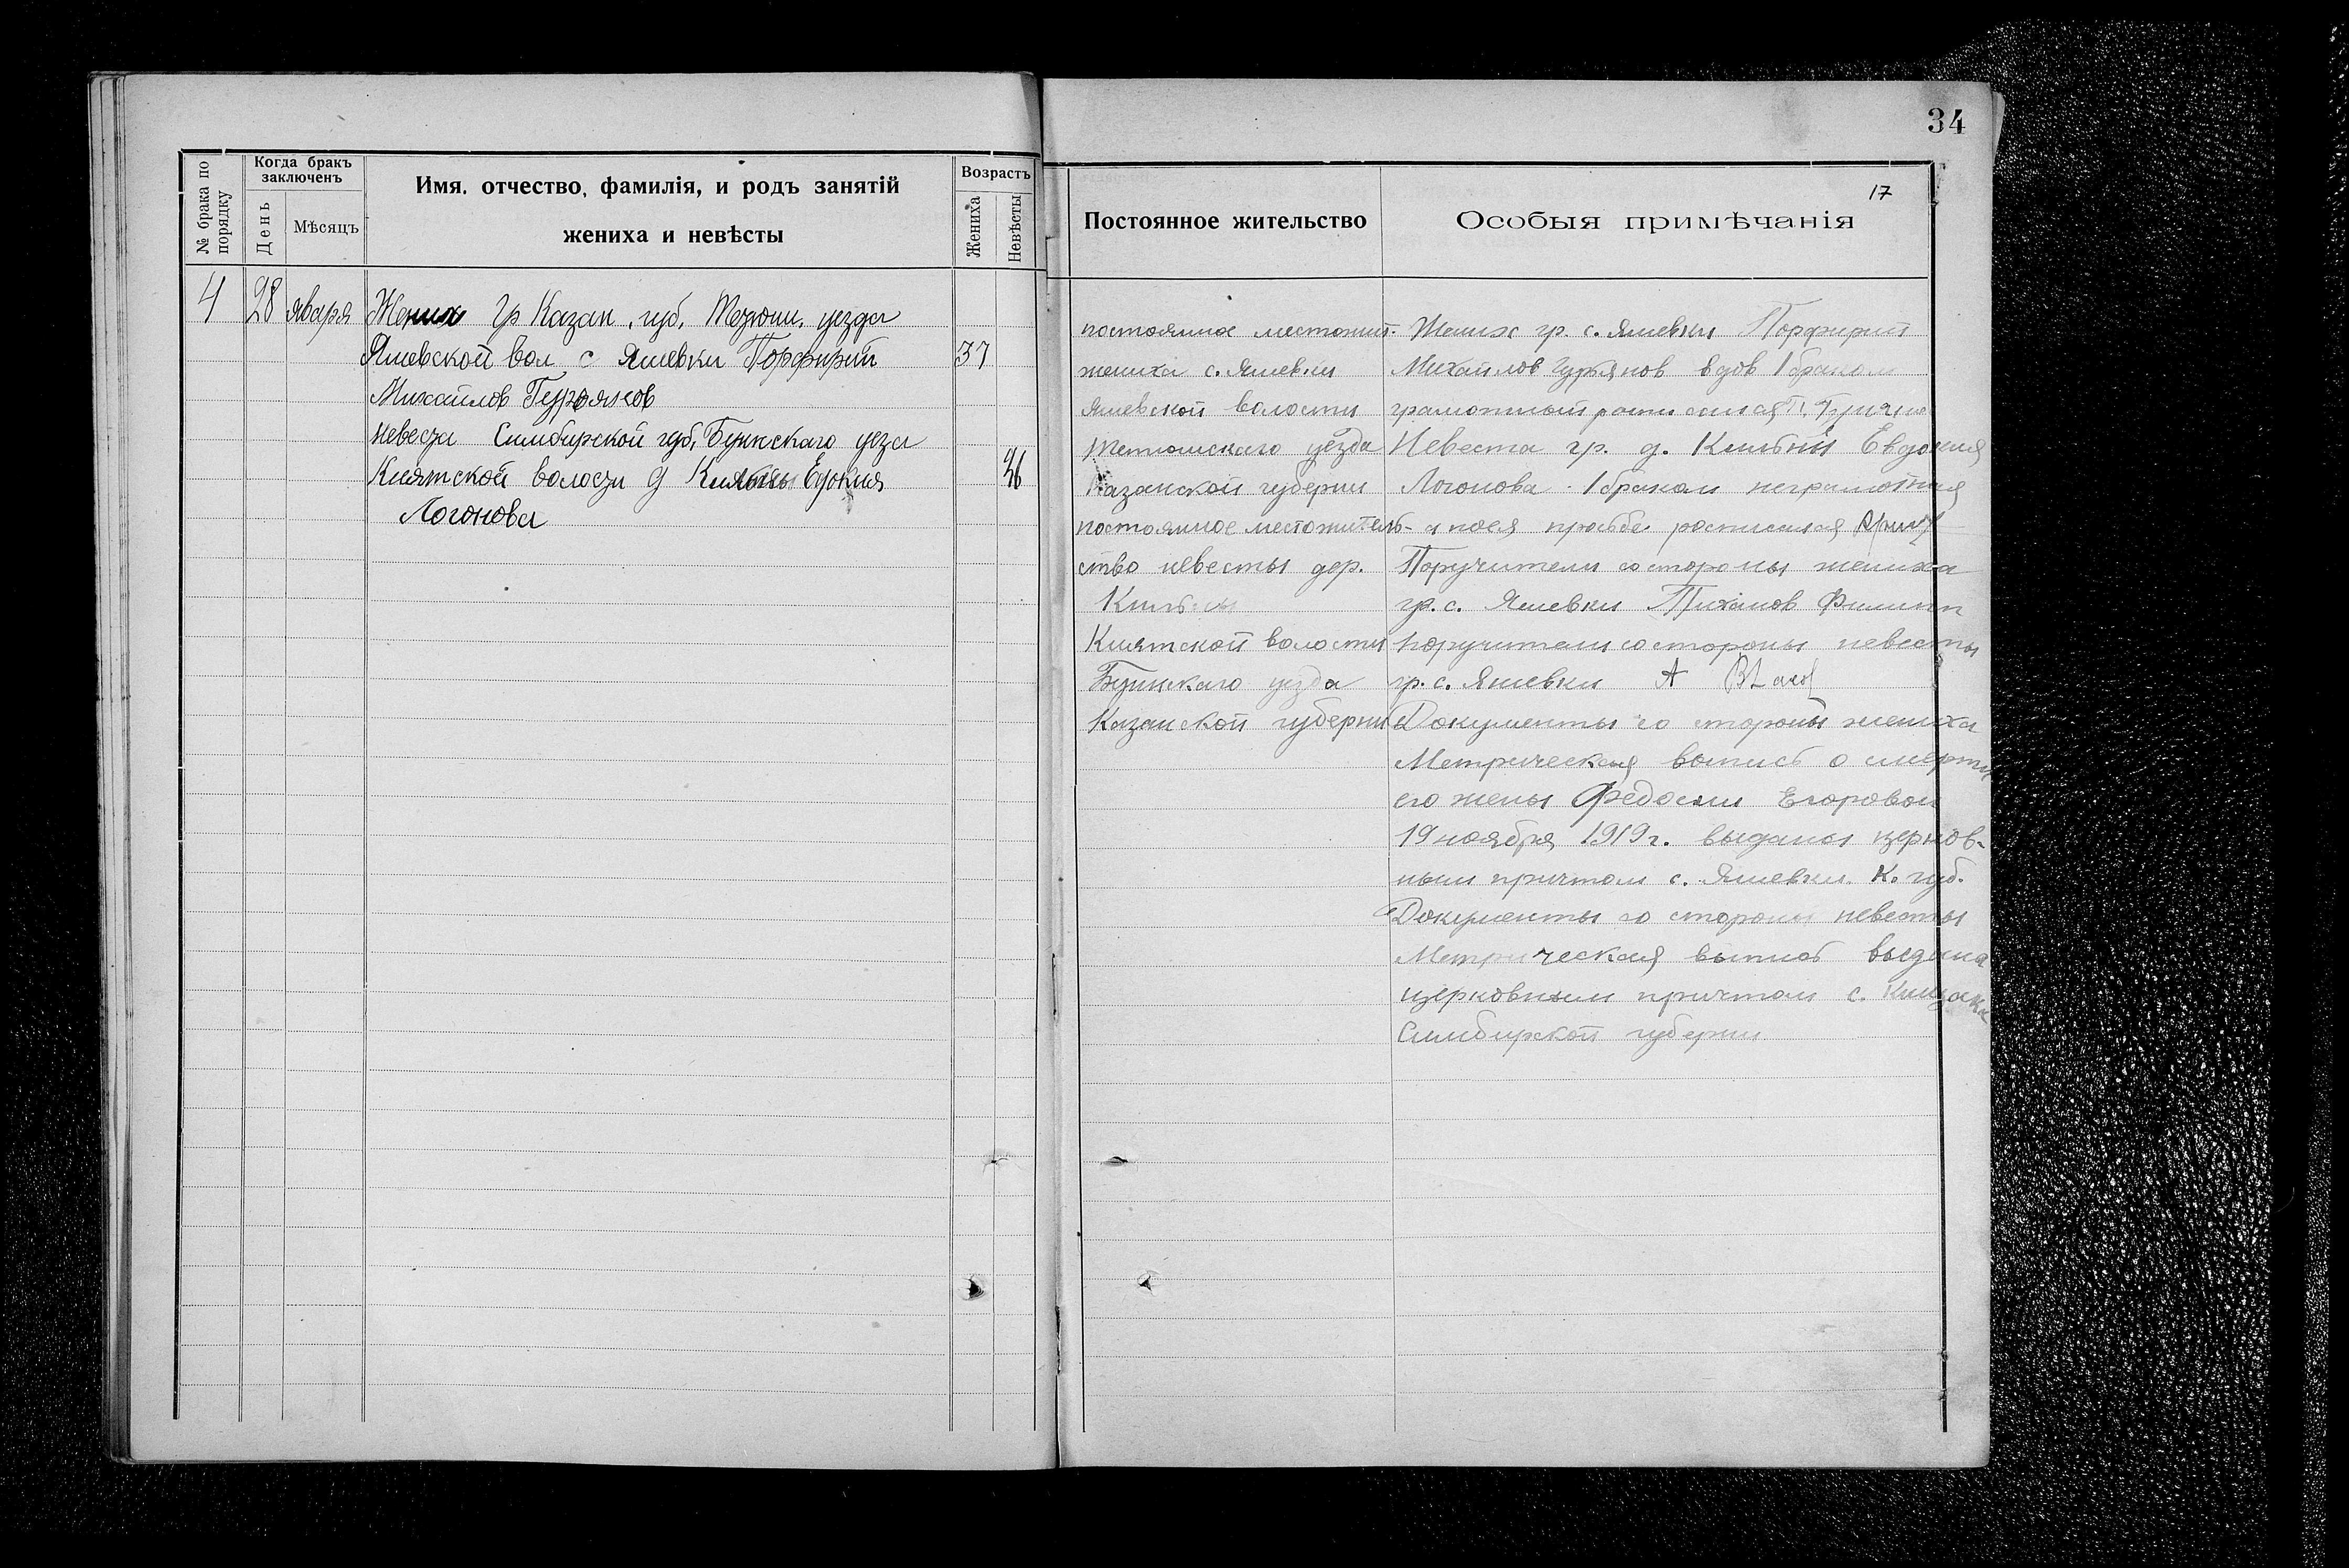 34
17
№ брака по порядку
Когда бракъ заключенъ
День
Мѣсяцъ
Имя, отчество, фамилія, и родъ занятій
жениха и невѣсты
Возрастъ
Жениха
Невѣсты
Постоянное жительство
Особыя примѣчанія
4 28 января Жених Гр Казан. губ. Тетюш. уезда
Яшевской вол с Яшевки Порфирий 37
Михайлов Гурьянов
невеста Симбирской губ, Буинскаго уезда
Киятской волости д Едокия
Логонова
постоянное местожит.
жениха с. Яшевки
Яшевской волости
Тетюшскаго уезда
Казанской губернии
постоянное местожитель-
ство невесты дер.
Киятской волости
Буинскаго уезда
Казанской губернии
Жених гр. с. Яшевки Порфирий
Михайлов Гурьянов вдов 1 браком
грамотный
Невеста гр. д. Евдокия
Логонова 1 браком неграмотная
а поея прозьбе росписился
Поручители состороны жениха
гр. с. Яшевки Тиханов Филипп
поручители состороны невесты
гр. с. Яшевки А
Документы со стороны жениха
Метрическая выпись о смерти
его жены Федосии Егоровой
19 ноября 1919 г. выданы церков-
ным причтом с. Яшевки К. губ.
Документы со стороны невесты
Метрическая выпись выдана
церковным причтом с.
Симбирской губернии